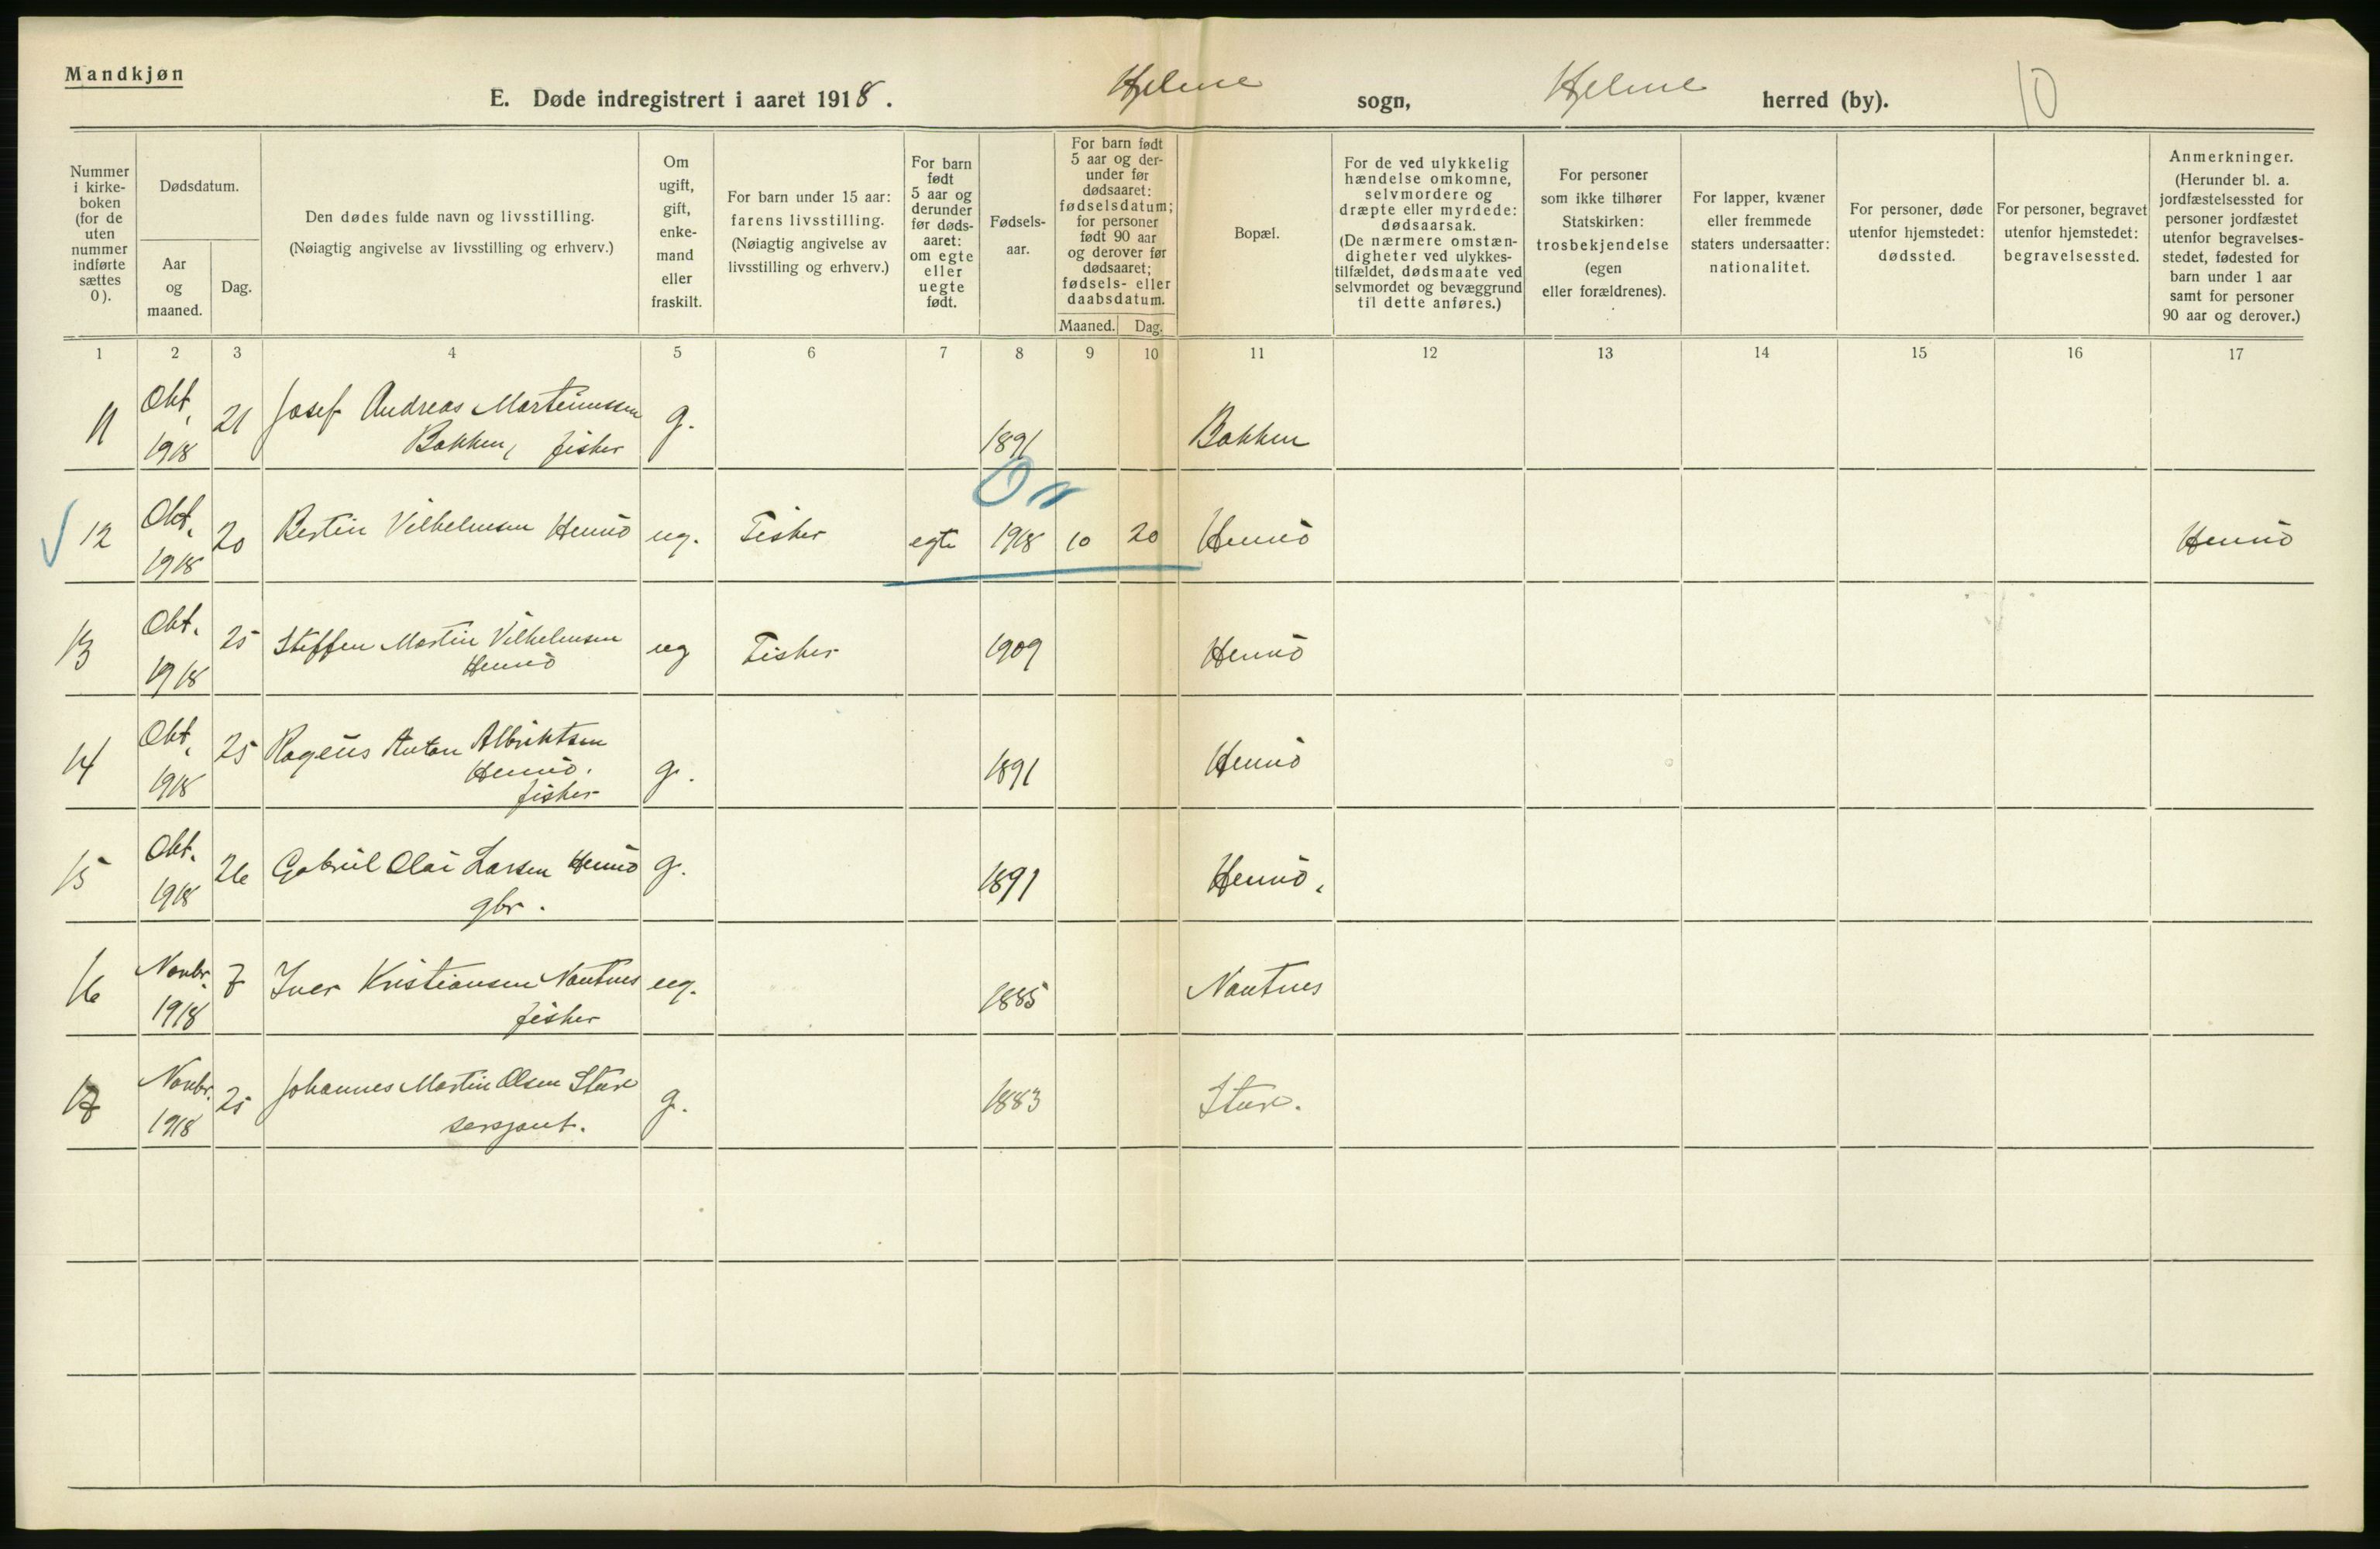 Mandkjøn
E. Døde indregistrert i aaret 1918. Hjelme sogn, Hjelme herred (by). 10
Nummer
i kirke-
boken
(for de
uten
nummer
indførte
sættes
0).
Dødsdatum.
Aar
og
maaned.
Dag.
Den dødes fulde navn og livsstilling.
(Nøiagtig angivelse av livsstilling og erhverv.)
Om
ugift,
gift,
enke-
mand
eller
fraskilt.
For barn under 15 aar:
farens livsstilling.
(Nøiagtig angivelse av
livsstilling og erhverv.)
For barn
født
5 aar og
derunder
før døds-
aaret:
om egte
eller
uegte
født.
Fødsels-
aar.
For barn født
5 aar og der-
under før
dødsaaret:
fødselsdatum;
for personer
født 90 aar
og derover før
dødsaaret;
fødsels- eller
daabsdatum.
Maaned. Dag.
Bopæl.
For de ved ulykkelig
hændelse omkomne,
selvmordere og
dræpte eller myrdede:
dødsaarsak.
(De nærmere omstæn-
digheter ved ulykkes-
tilfældet, dødsmaate ved
selvmordet og bevæggrund
til dette anføres.)
For personer
som ikke tilhører
Statskirken:
trosbekjendelse
(egen
eller forældrenes).
For lapper, kvæner
eller fremmede
staters undersaatter:
nationalitet.
For personer, døde
utenfor hjemstedet:
dødssted.
For personer, begravet
utenfor hjemstedet:
begravelsessted.
Anmerkninger.
(Herunder bl. a.
jordfæstelsessted for
personer jordfæstet
utenfor begravelses-
stedet, fødested for
barn under 1 aar
samt for personer
90 aar og derover.)
1 2 3 4 5 6 7 8 9 10 11 12 13 14 15 16 17
11 Okt. 1918 21 Josef Andreas Martinussen g. 1891 Bakken
Bakken, fisker
12 Okt. 1918 20 Bertin Vilhelmsen Hennö ug. Fisker egte 1918 10 20 Hennö Hennö
13 Okt. 1918 25 Steffen Martin Vilhelmsen ug Fisker 1909 Hennö
Hennö
14 Okt. 1918 25 Rageüs Anton Albriktsen g. 1891 Hennö
Hennö.
fisker
15 Okt. 1918 26 Gabriel Olai Larsen Hennö g. 1891 Hennö.
gbr.
16 Novbr. 1918 7 Iver Kristiansen Nautnes ug. 1885 Nautnes
fisker
17 Novbr. 1918 25 Johannes Martin Olsen Sture g. 1883 Sture.
sersjant.